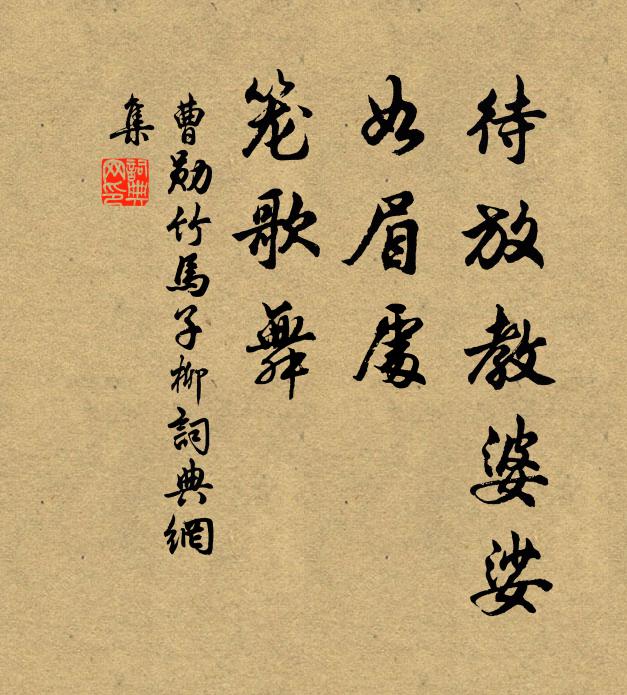 待放教婆娑
如眉處
笼歌舞
曹勋竹馬子柳詞典網
集
詞典
网印